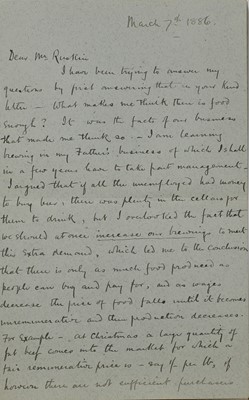 March 7th 1886.
Dear Mr Ruskin
I have been trying to answer my
questions by first answering that in your kind
letter – What makes me think there is food
enough? It was the facts of our business
that made me think so – I am learning
brewing in my Father's business of which I shall
in a few years have to take part management –
I argued that if all the unemployed had money
to buy beer, there was plenty in the cellars for
them to drink, but I overlooked the fact that
we should at once increase our brewing to meet
this extra demand, which led me to the conclusion
that there is only as much food produced as
people can buy and pay for, and as wages
decrease the price of food falls until it becomes
unremunerative and then production decreases.
For Example – at Christmas a large quantity of
fat beef comes into the market for which a
fair remunerative price is – say 9d per lb, if
however there are not sufficient purchasers